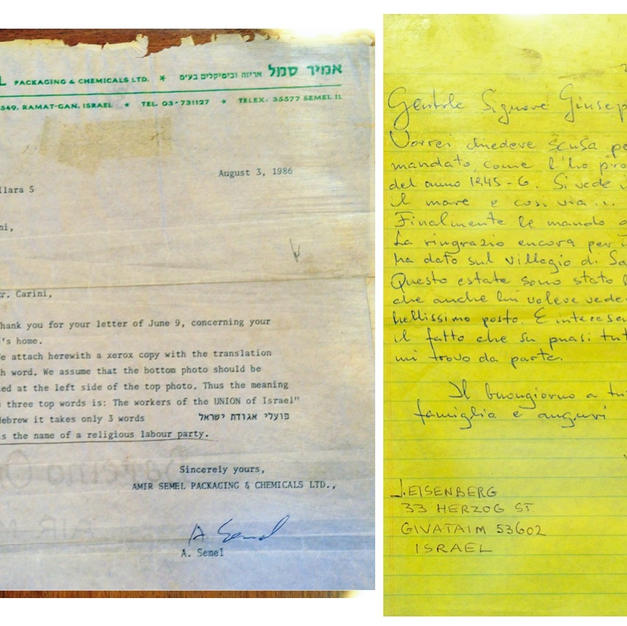 L PACKAGING & CHEMICALS LTD. * אמיר סמל אריזה וכימיקלים בע״מ
549, RAMAT-GAN, ISRAEL * TEL. 03-731127 * TELEX: 35577 SEMEL IL
August 3, 1986
llara 5
ni,
r. Carini,
hank you for your letter of June 9, concerning your
's home.
e attach herewith a xerox copy with the translation
h word. We assume that the bottom photo should be
ed at the left side of the top photo. Thus the meaning
three top words is: The workers of the UNION of Israel"
ebrew it takes only 3 words פועלי אגודת ישראל
s the name of a religious labour party.
Sincerely yours,
AMIR SEMEL PACKAGING & CHEMICALS LTD.,
A Semel
A. Semel
Gentile Signore Giusep
Vorrei chiedere scusa pe
mandato come l'ho pro
del anno 1945-6. Si vede i
il mare e cosi via...
Finalmente le mando
La ringrazio encora per
ha dato sul villagio di Sa
Questo estate sono stato
che anche lui voleve vede
bellissimo posto. E interes
il fatto che su quasi tut
mi trovo da parte.
Il buongiorno a tu
famiglia e auguri
J. EISENBERG
33 HERZOG ST
GIVATAIM 53602
ISRAEL